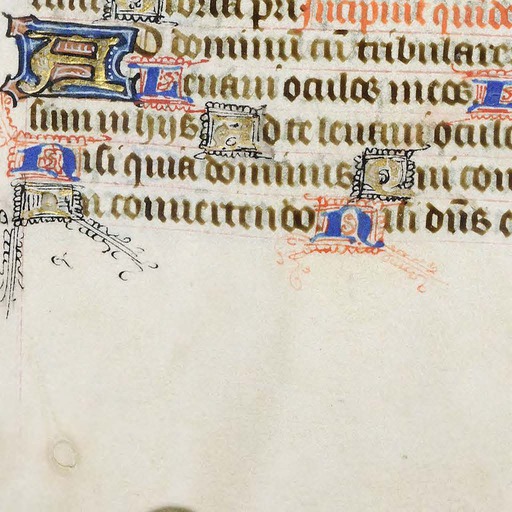 gloria pri. Incipiunt quide
AD dominū cū tribulare
Leuaui oculos meos L
sum in hijs Ad te leuaui oculo
Nisi quia dominus Qui con
In conuertendo Nisi dn̄s e